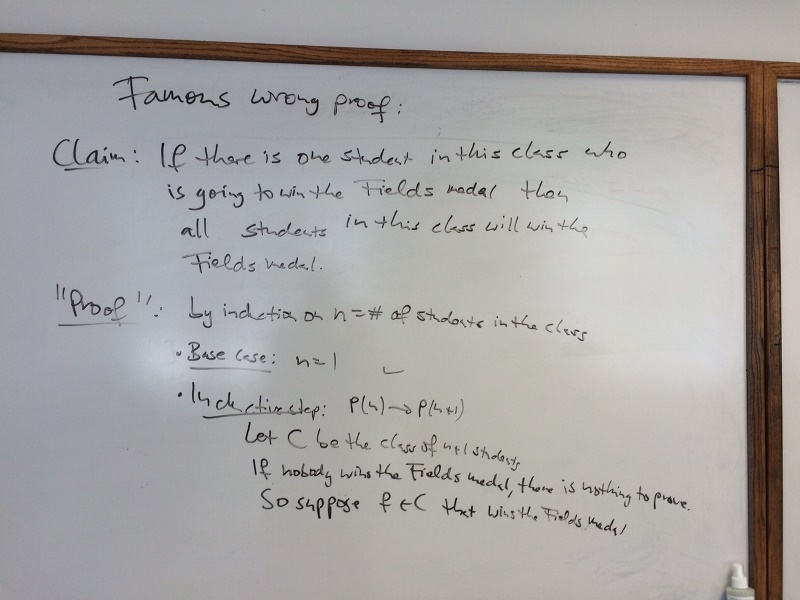 Famous wrong proof:
Claim: If there is one student in this class who
is going to win the Fields medal then
all students in this class will win the
Fields medal.
"Proof": by induction on n = # of students in the class
• Base case: n=1 ✓
• Inductive step: P(n) → P(n+1)
Let C be the class of n+1 students
If nobody wins the Fields medal, there is nothing to prove.
So suppose f ∈ C that wins the Fields medal